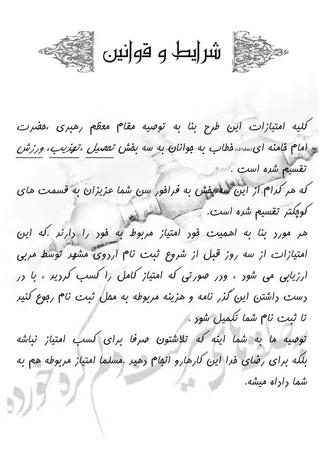 شرایط و قوانین
کلیه امتیازات این طرح بنا به توصیه مقام معظم رهبری ،حضرت
امام خامنه ای خطاب به جوانان به سه بخش تحصیل ،تهذیب، ورزش
تقسیم شده است .
که هر کدام از این سه بخش به فراخور سن شما عزیزان به قسمت های
کوچکتر تقسیم شده است.
هر مورد بنا به اهمیت خود امتیاز مربوط به خود را دارند .که این
امتیازات از سه روز قبل از شروع ثبت نام اردوی مشهد توسط مربی
ارزیابی می شود ، ودر صورتی که امتیاز کامل را کسب کردید ، با در
دست داشتن این گذر نامه و هزینه مربوطه به محل ثبت نام رجوع کنید
تا ثبت نام شما تکمیل شود .
توصیه ما به شما اینه که تلاشتون صرفا برای کسب امتیاز نباشه
بلکه برای رضای خدا این کارهارو انجام دهید .مسلما امتیاز مربوطه هم به
شما داداه میشه.
گره خورده